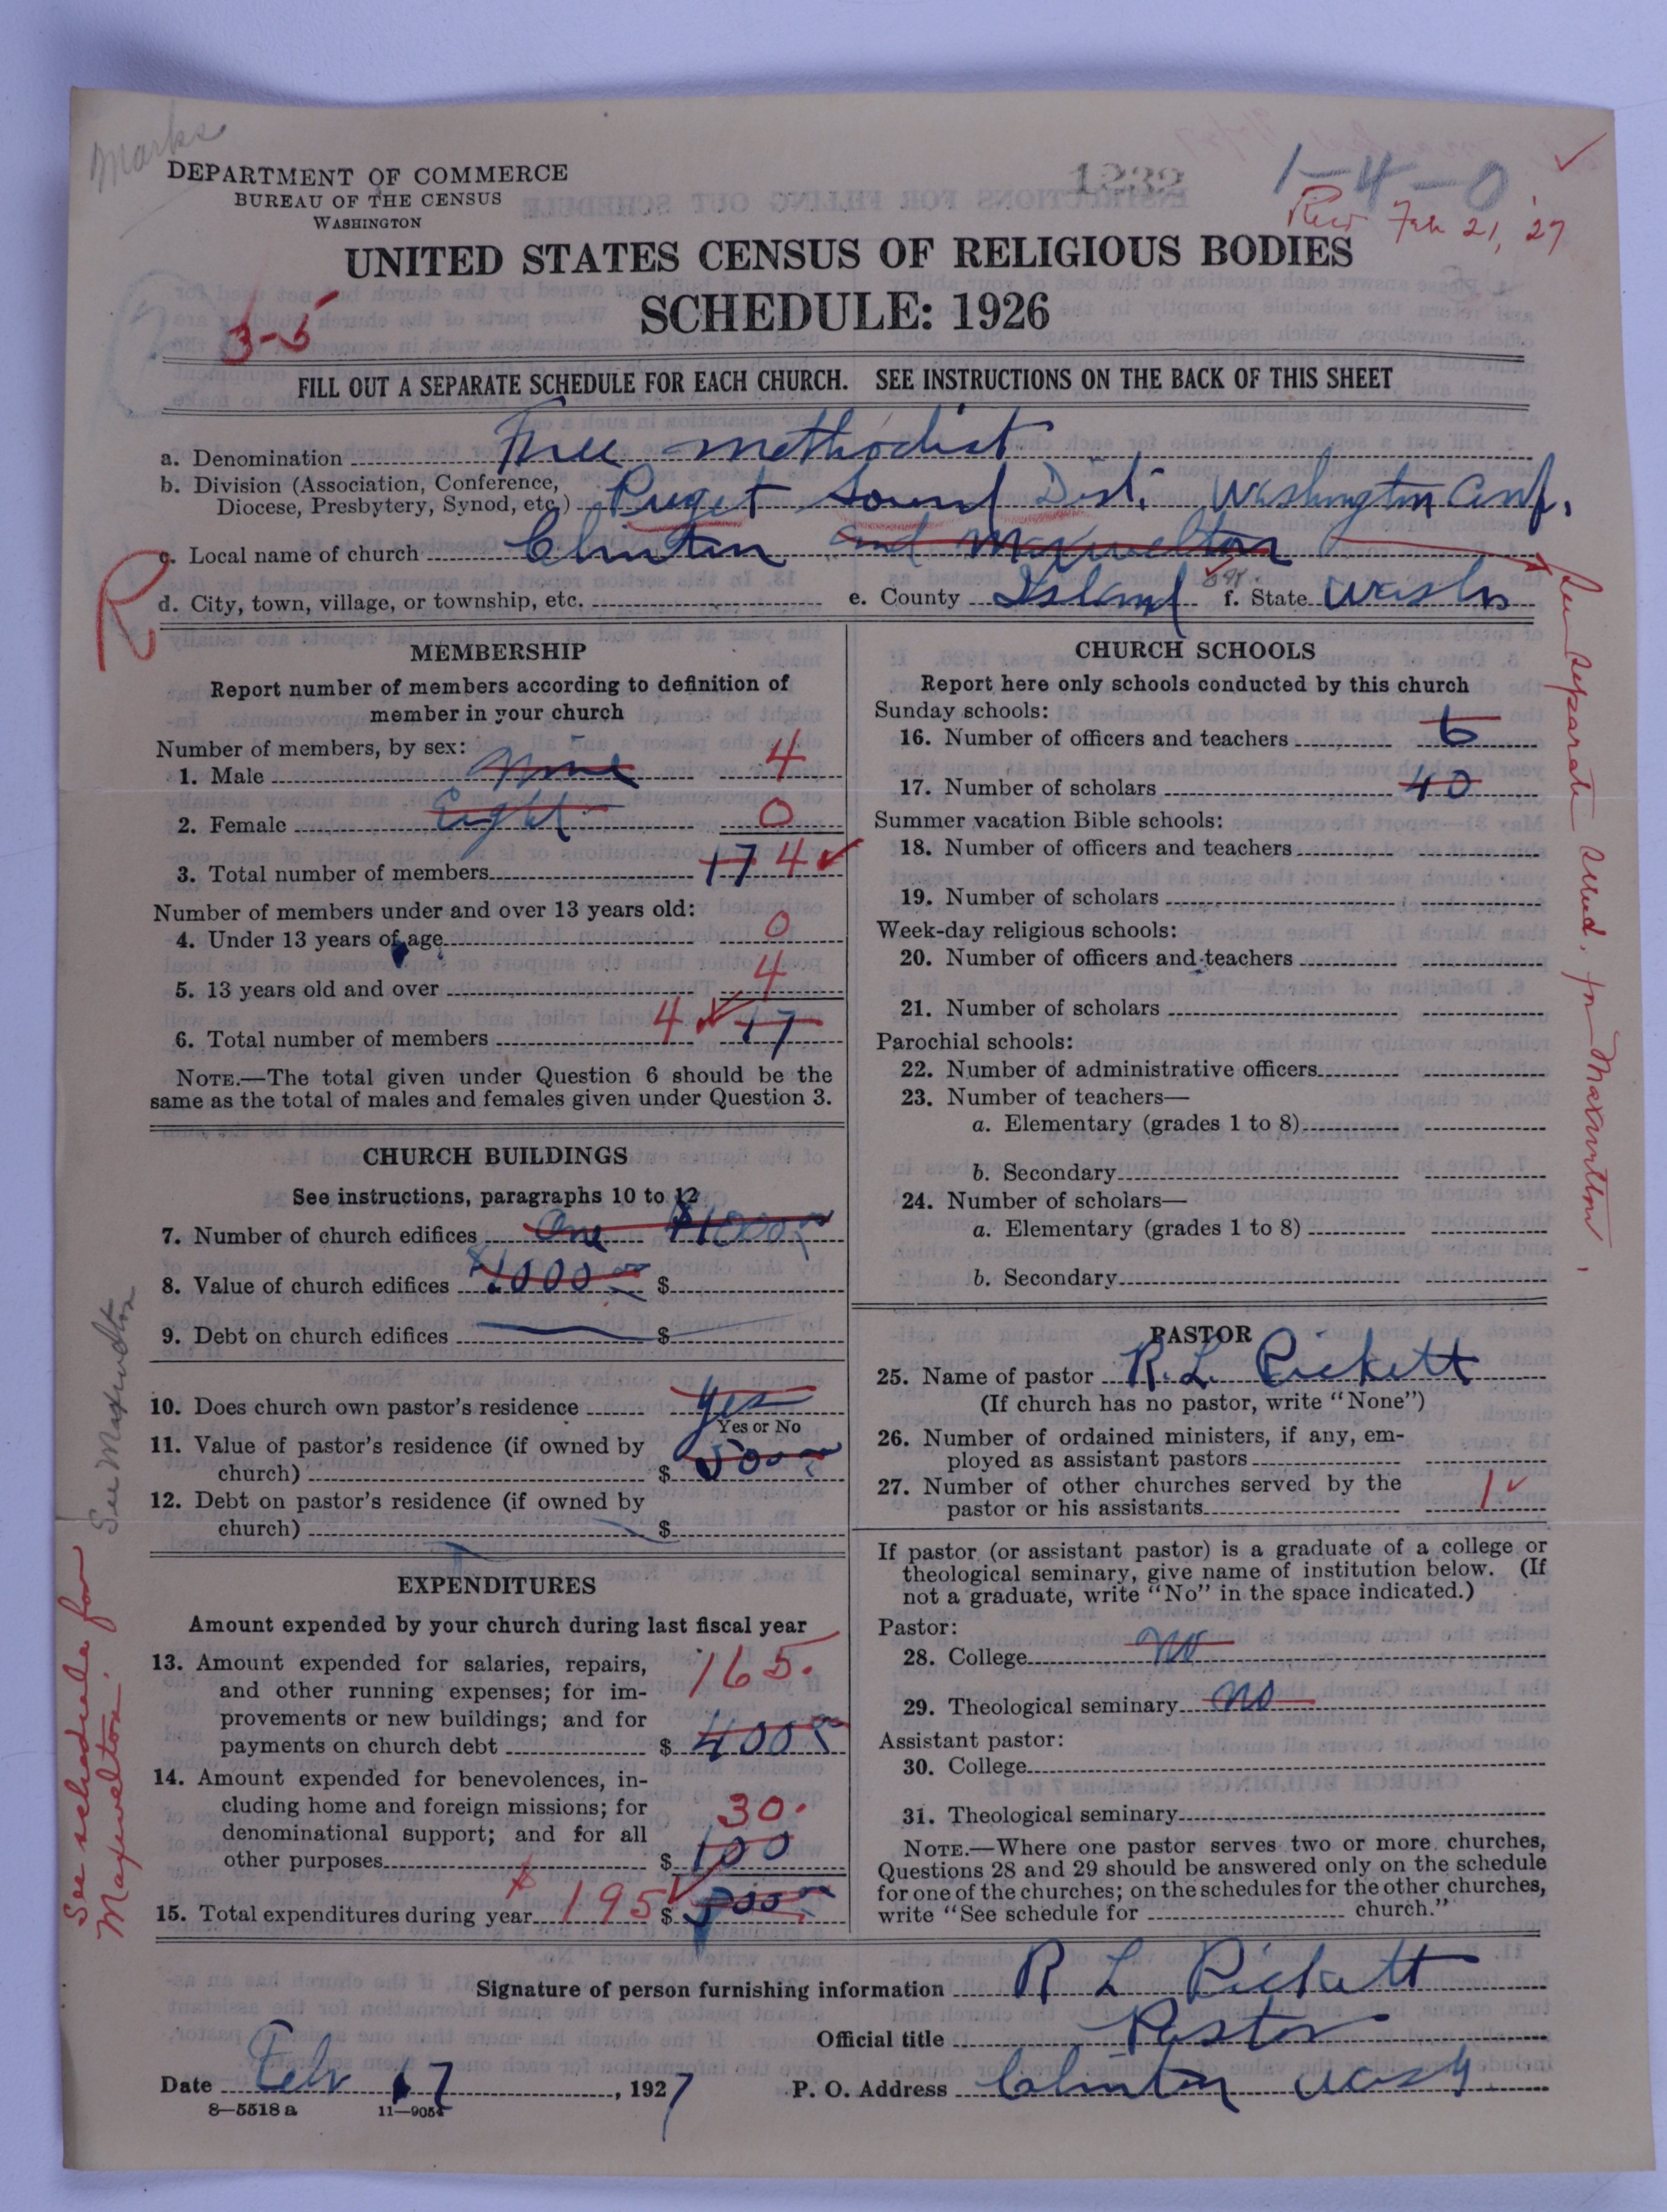 Marks
DEPARTMENT OF COMMERCE
BUREAU OF THE CENSUS
WASHINGTON
1232
1-4-0
Rec'd Feb 21, '27
UNITED STATES CENSUS OF RELIGIOUS BODIES
SCHEDULE: 1926
3-5
FILL OUT A SEPARATE SCHEDULE FOR EACH CHURCH. SEE INSTRUCTIONS ON THE BACK OF THIS SHEET
a. Denomination Free Methodist
b. Division (Association, Conference,
Diocese, Presbytery, Synod, etc.) Puget Sound Dist. Washington Conf.
R
c. Local name of church Clinton and Maxwelton
d. City, town, village, or township, etc. e. County Island f. State Wash
MEMBERSHIP
Report number of members according to definition of
member in your church
Number of members, by sex:
1. Male Nine 4
2. Female Eight 0
3. Total number of members 17 4
Number of members under and over 13 years old:
4. Under 13 years of age 0
5. 13 years old and over 4
6. Total number of members 4 17
NOTE.—The total given under Question 6 should be the
same as the total of males and females given under Question 3.
CHURCH BUILDINGS
See instructions, paragraphs 10 to 12
7. Number of church edifices One $1000
8. Value of church edifices $1000 $
9. Debt on church edifices $
10. Does church own pastor's residence yes
Yes or No
11. Value of pastor's residence (if owned by
church) $ 500
12. Debt on pastor's residence (if owned by
church) $
See Maxwelton
EXPENDITURES
Amount expended by your church during last fiscal year
13. Amount expended for salaries, repairs,
and other running expenses; for im-
provements or new buildings; and for
payments on church debt $ 400
165.
14. Amount expended for benevolences, in-
cluding home and foreign missions; for
denominational support; and for all
other purposes $ 100
30.
15. Total expenditures during year $195 $ 500
See schedule for
Maxwelton.
CHURCH SCHOOLS
Report here only schools conducted by this church
Sunday schools:
16. Number of officers and teachers 6
17. Number of scholars 40
Summer vacation Bible schools:
18. Number of officers and teachers
19. Number of scholars
Week-day religious schools:
20. Number of officers and teachers
21. Number of scholars
Parochial schools:
22. Number of administrative officers
23. Number of teachers—
a. Elementary (grades 1 to 8)
b. Secondary
24. Number of scholars—
a. Elementary (grades 1 to 8)
b. Secondary
separate sched. for Maxwelton.
PASTOR
25. Name of pastor R. L. Pickett
(If church has no pastor, write "None")
26. Number of ordained ministers, if any, em-
ployed as assistant pastors
27. Number of other churches served by the
pastor or his assistants 1
If pastor (or assistant pastor) is a graduate of a college or
theological seminary, give name of institution below. (If
not a graduate, write "No" in the space indicated.)
Pastor:
28. College No
29. Theological seminary No
Assistant pastor:
30. College
31. Theological seminary
NOTE.—Where one pastor serves two or more churches,
Questions 28 and 29 should be answered only on the schedule
for one of the churches; on the schedules for the other churches,
write "See schedule for church."
Signature of person furnishing information R L Pickett
Official title Pastor
Date Feb 17, 1927 P. O. Address Clinton Wash
8—5518 a 11—9054